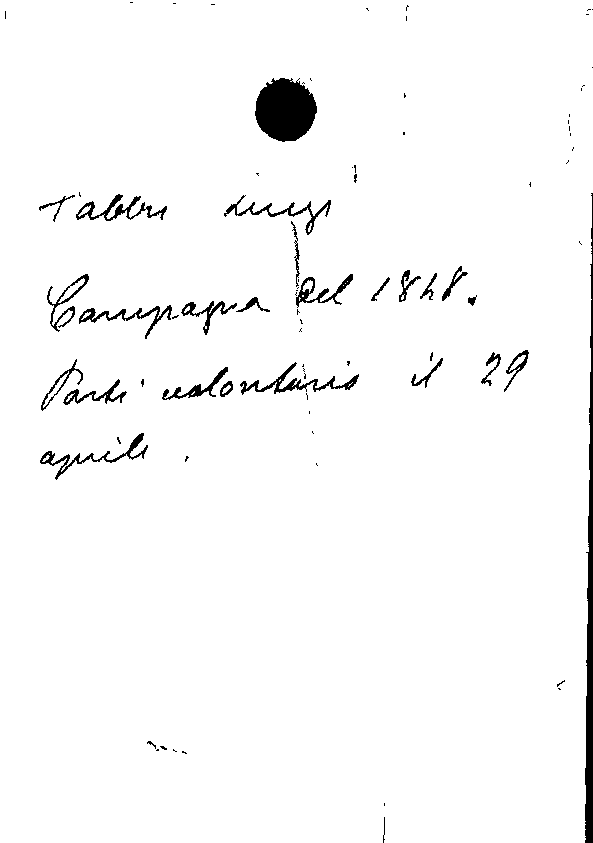 Fabbri Luigi
Campagna del 1848.
Partì volontario il 29
aprile.